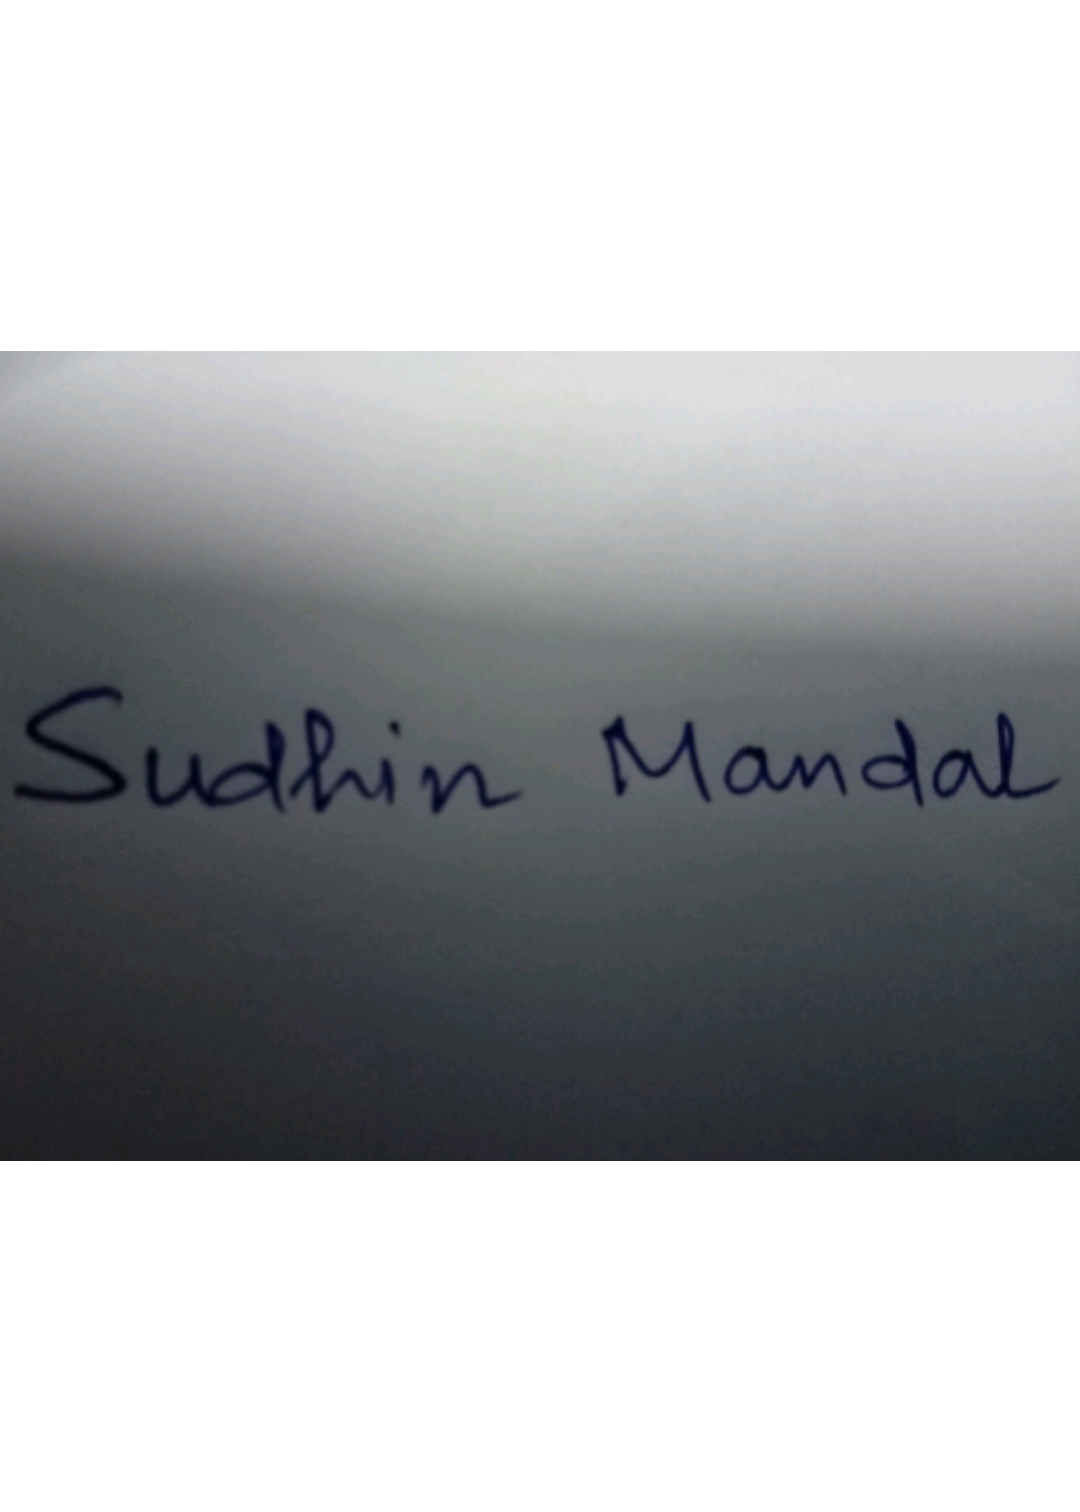 Sudhin Mandal